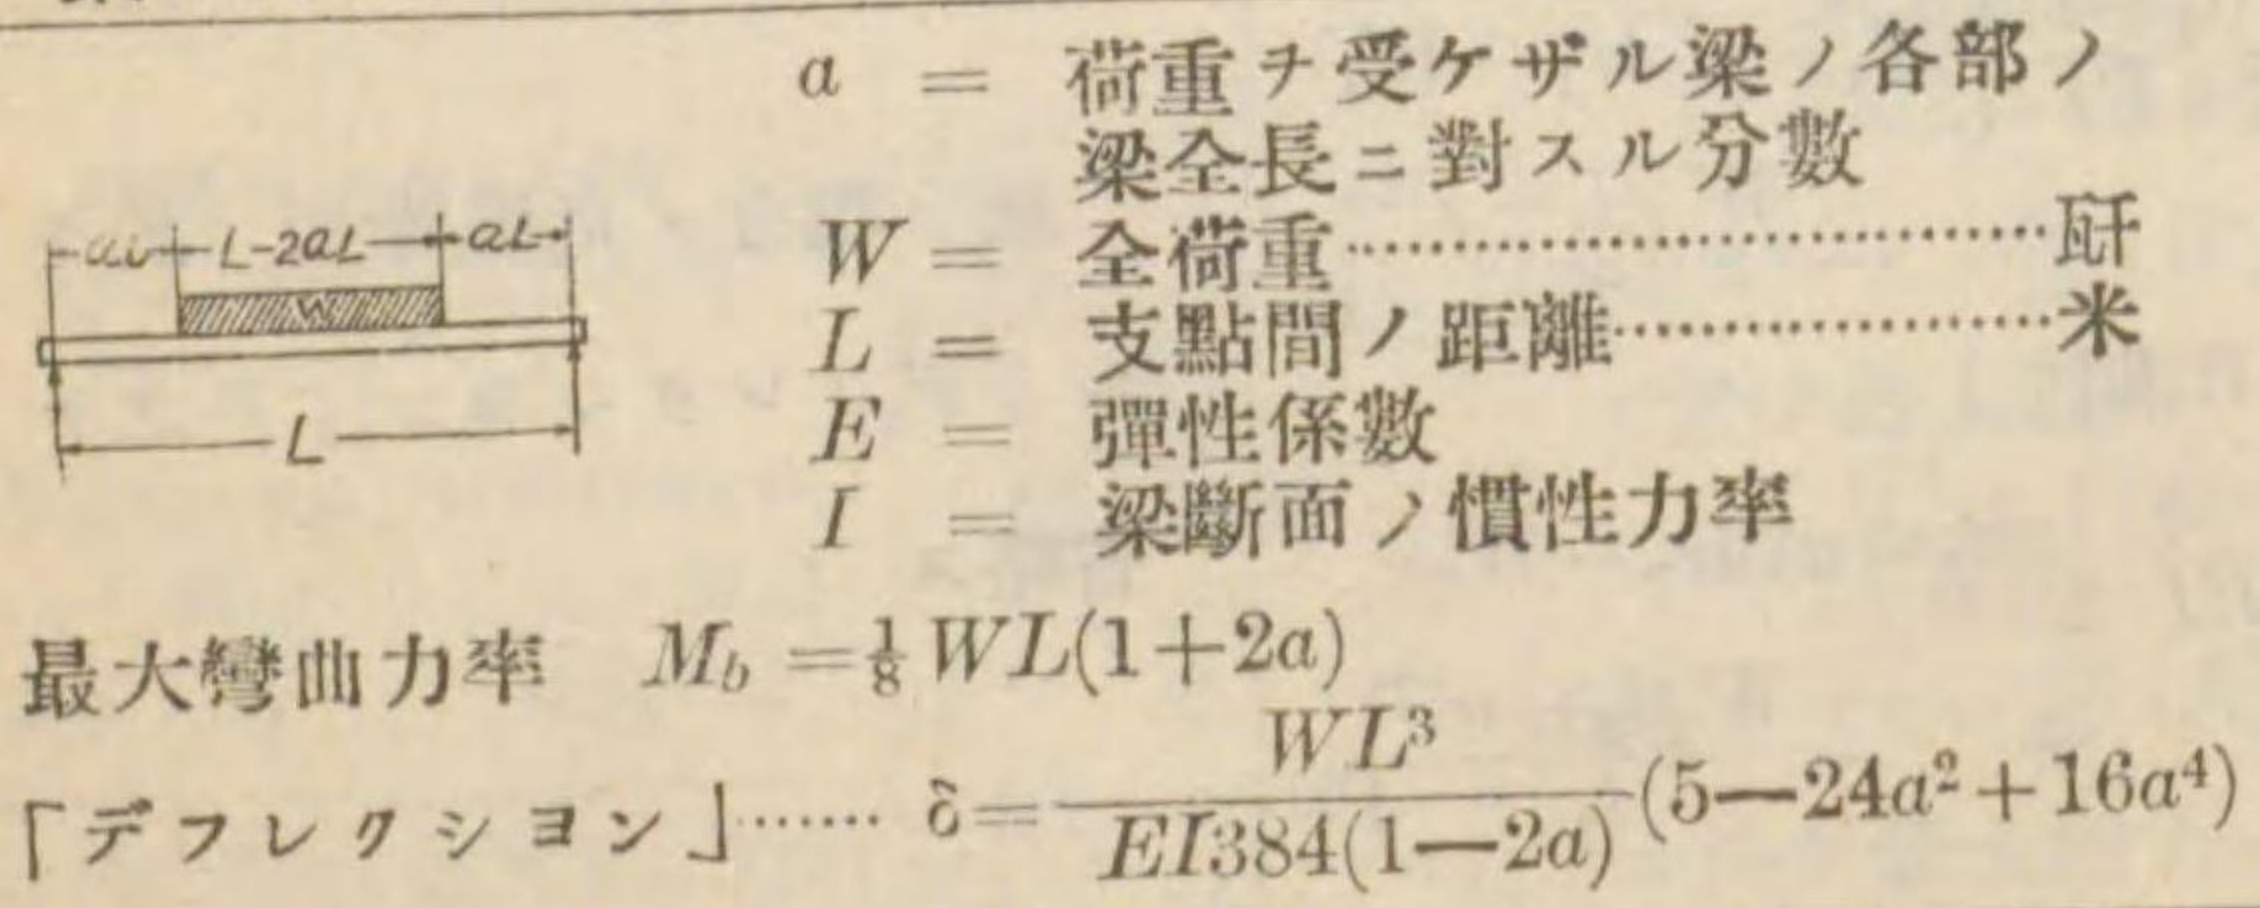 a = 荷重ヲ受ケザル梁ノ各部ノ
梁全長ニ對スル分數
W = 全荷重……………………………瓩
L = 支點間ノ距離…………………米
E = 彈性係數
I = 梁斷面ノ慣性力率
L-2aL aL
W
L
最大彎曲力率 M_b = 1/8 WL(1+2a)
「デフレクション」…… δ = WL³/EI384(1−2a) (5−24a²+16a⁴)